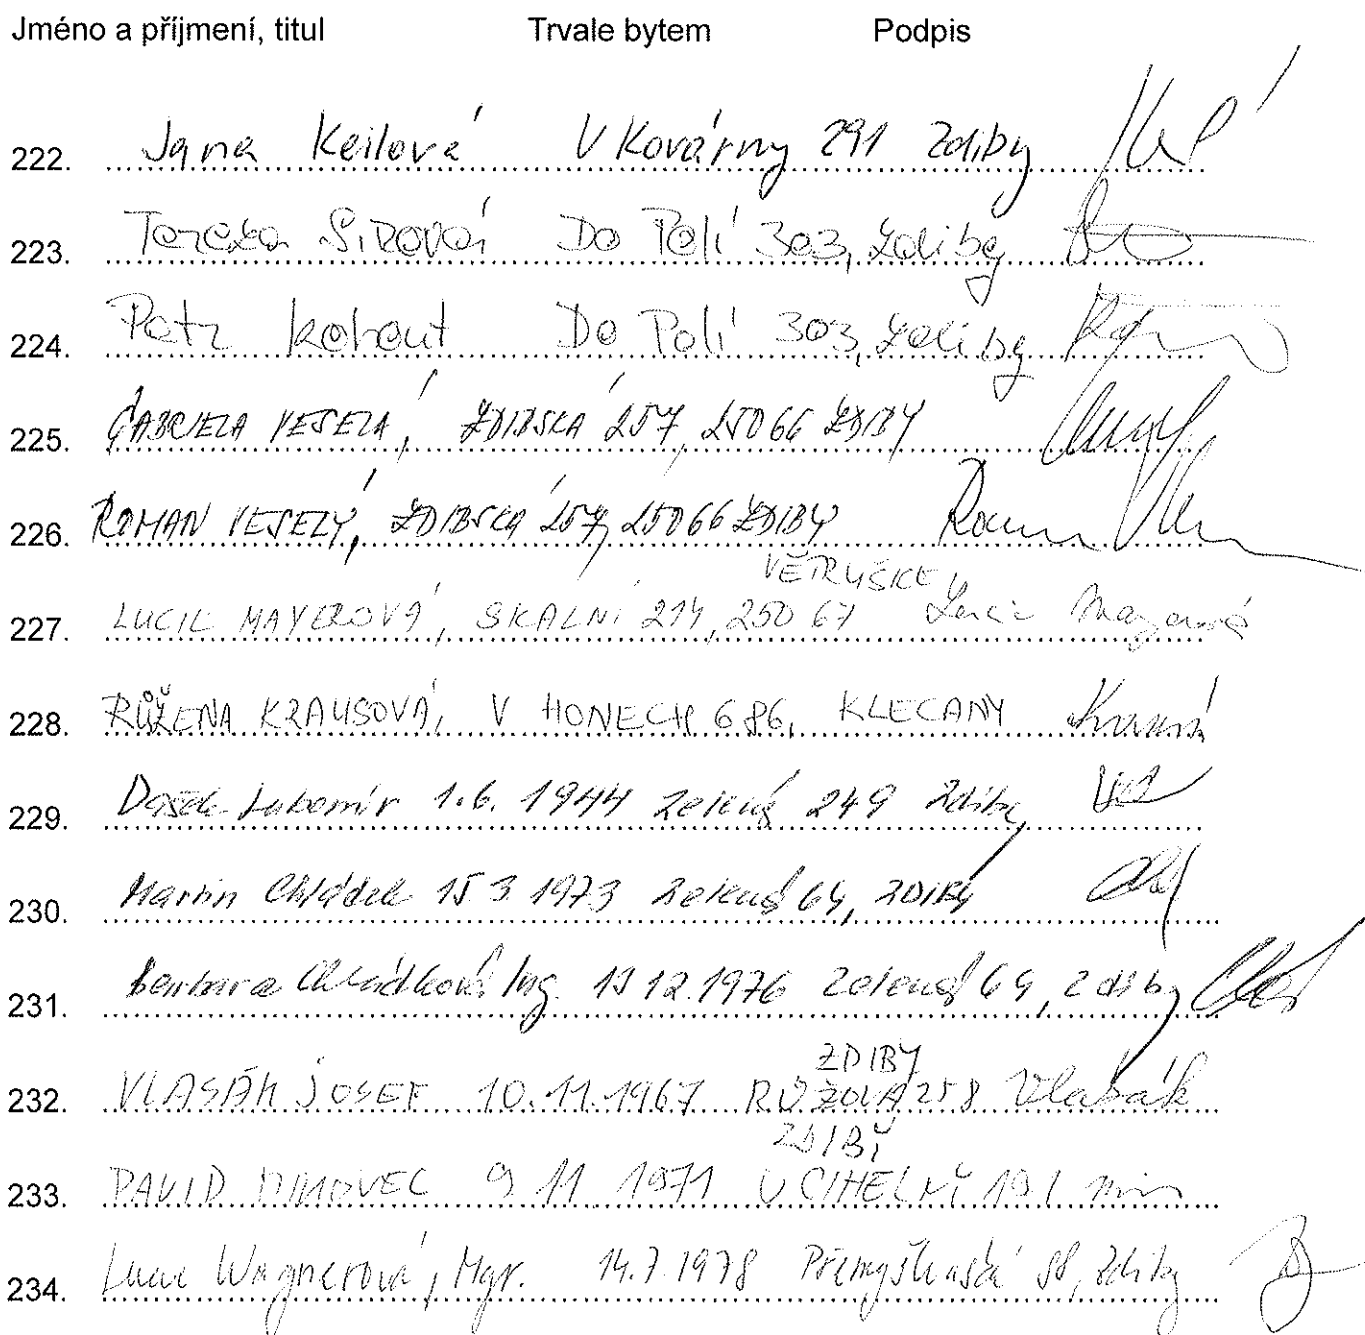 Jméno a příjmení, titul Trvale bytem Podpis
222. Jana Keilová U Kovárny 291 Zdiby
223. Tereza Do Polí 303, Zdiby
224. Petr Kohout Do Polí 303, Zdiby
225. GABRIELA VESELÁ, ZDIBSKÁ 257, 25066 ZDIBY
226. ROMAN VESELÝ, ZDIBSKÁ 257, 25066 ZDIBY
VĚTRUŠICE
227. LUCIE MAYEROVÁ, SKALNÍ 214, 250 67 Lucie Mayerová
228. RŮŽENA KRAUSOVÁ, V HONECH 686, KLECANY
229. Lubomír 1.6. 1944 Zelená 249 Zdiby
230. Martin Chládek 15 3 1973 Zelená 64, ZDIBY
231. Barbara Chládková Ing. 12.1976 Zelená 64, Zdiby
ZDIBY
232. VLASÁK JOSEF 10.11.1967 RŮŽOVÁ 258 Vlasák
ZDIBY
233. DAVID 9 11 1971 U CIHELNY 191
234. Lucie Wagnerová, Mgr. 14.7.1978 Přemyšlenská 98, Zdiby